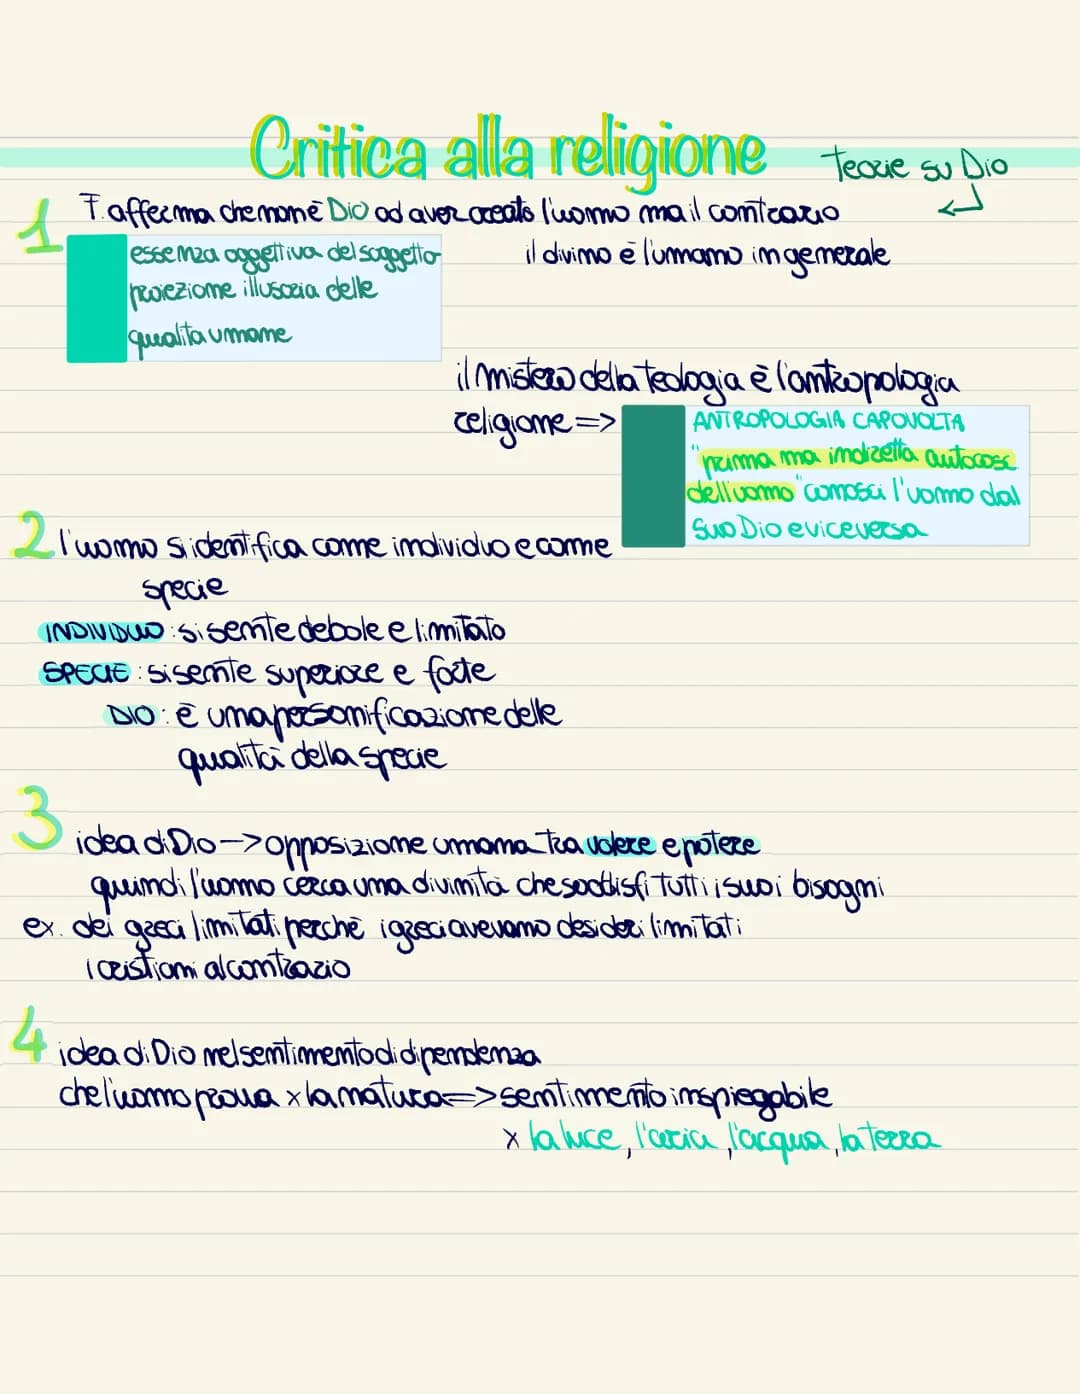 Critica alla religione
teorie su Dio
1 F. afferma che non è Dio ad aver creato l'uomo ma il contrario
essenza oggettiva del soggetto
il divino è l'umano in generale
proiezione illusoria delle
qualità umane
il mistero della teologia è l'antropologia
religione =>
ANTROPOLOGIA CAPOVOLTA
"prima ma indiretta autocosc.
dell'uomo" conosci l'uomo dal
suo Dio e viceversa
2 l'uomo si identifica come individuo e come
specie
INDIVIDUO: si sente debole e limitato
SPECIE: si sente superiore e forte
DIO: è una personificazione delle
qualità della specie
3 idea di Dio -> opposizione umana tra volere e potere
quindi l'uomo cerca una divinità che soddisfi tutti i suoi bisogni
ex. dei greci limitati perchè i greci avevano desideri limitati
i cristiani al contrario
4 idea di Dio nel sentimento di dipendenza
che l'uomo prova x la natura => sentimento inspiegabile
x la luce, l'aria, l'acqua, la terra